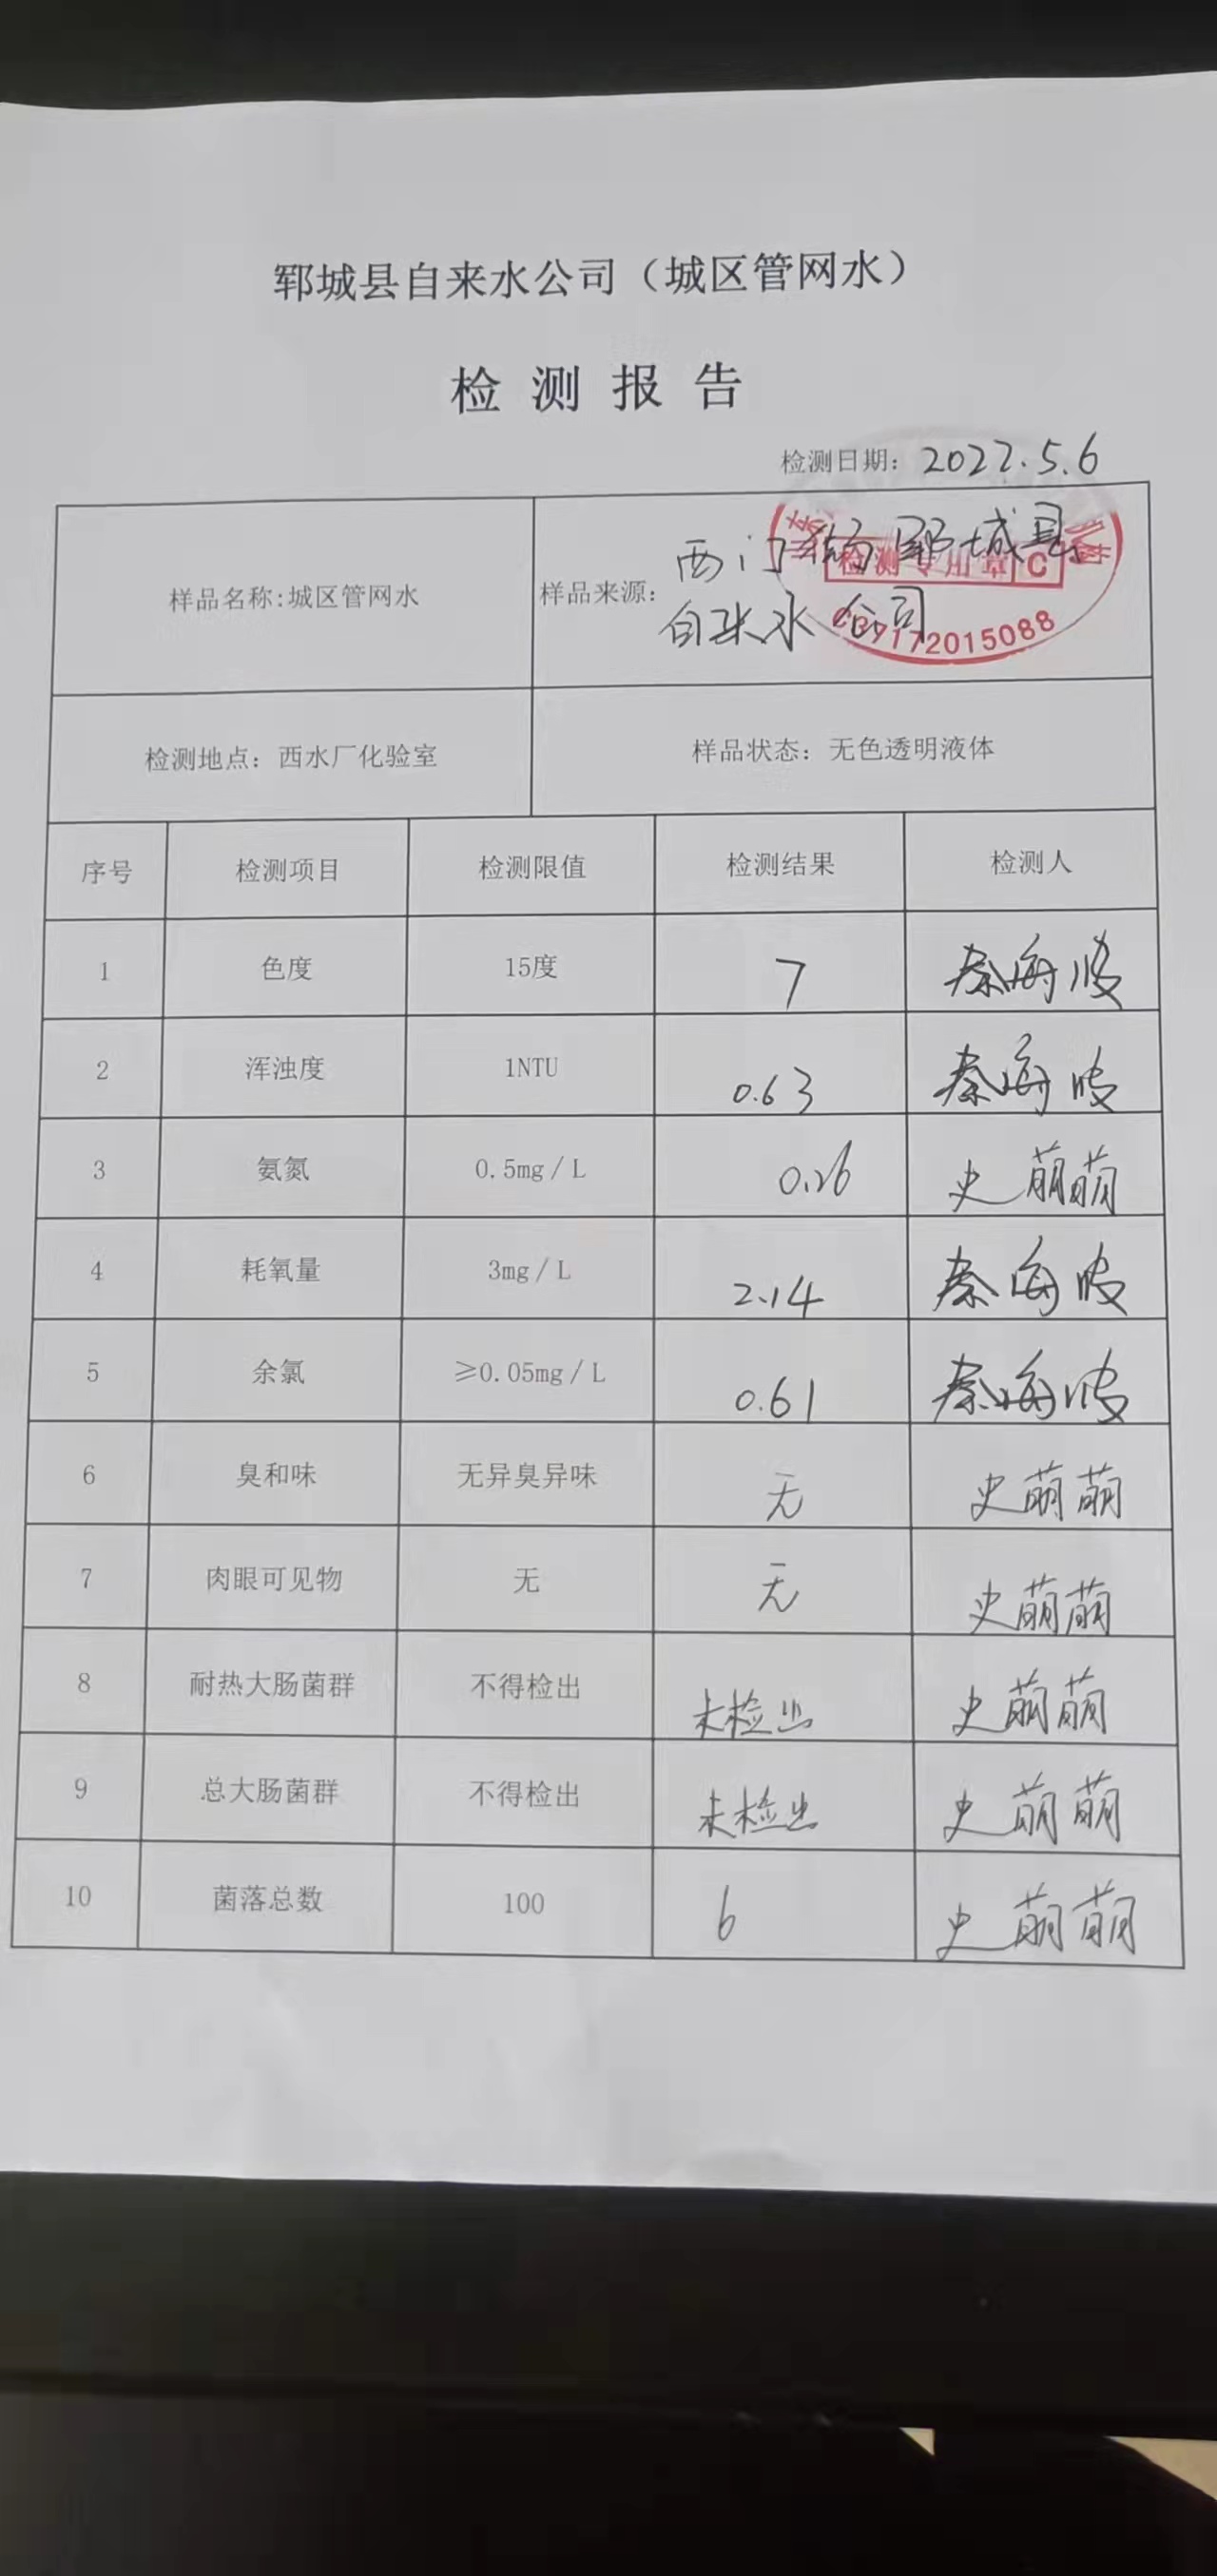 郓城县自来水公司（城区管网水）
检 测 报 告
检测日期：2022.5.6
样品名称:城区管网水
样品来源：西门 郓城县
自来水公司
检测专用章 C
72015088
检测地点：西水厂化验室 样品状态：无色透明液体
序号 检测项目 检测限值 检测结果 检测人
1 色度 15度 7 秦海波
2 浑浊度 1NTU 0.63 秦海波
3 氨氮 0.5mg／L 0.26 史萌萌
4 耗氧量 3mg／L 2.14 秦海波
5 余氯 ≥0.05mg／L 0.61 秦海波
6 臭和味 无异臭异味 无 史萌萌
7 肉眼可见物 无 无 史萌萌
8 耐热大肠菌群 不得检出 未检出 史萌萌
9 总大肠菌群 不得检出 未检出 史萌萌
10 菌落总数 100 6 史萌萌